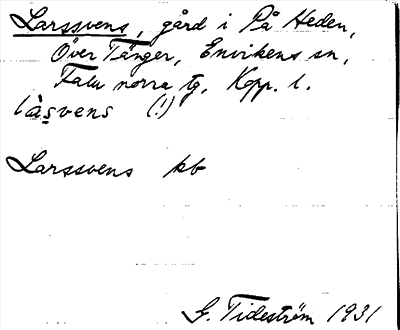 Larssvens, gård i På Heden,
Över Tänger, Envikens sn,
Falu norra tg, Kopp. l.
làsvens (!)
Larssvens kb
G. Tideström 1931